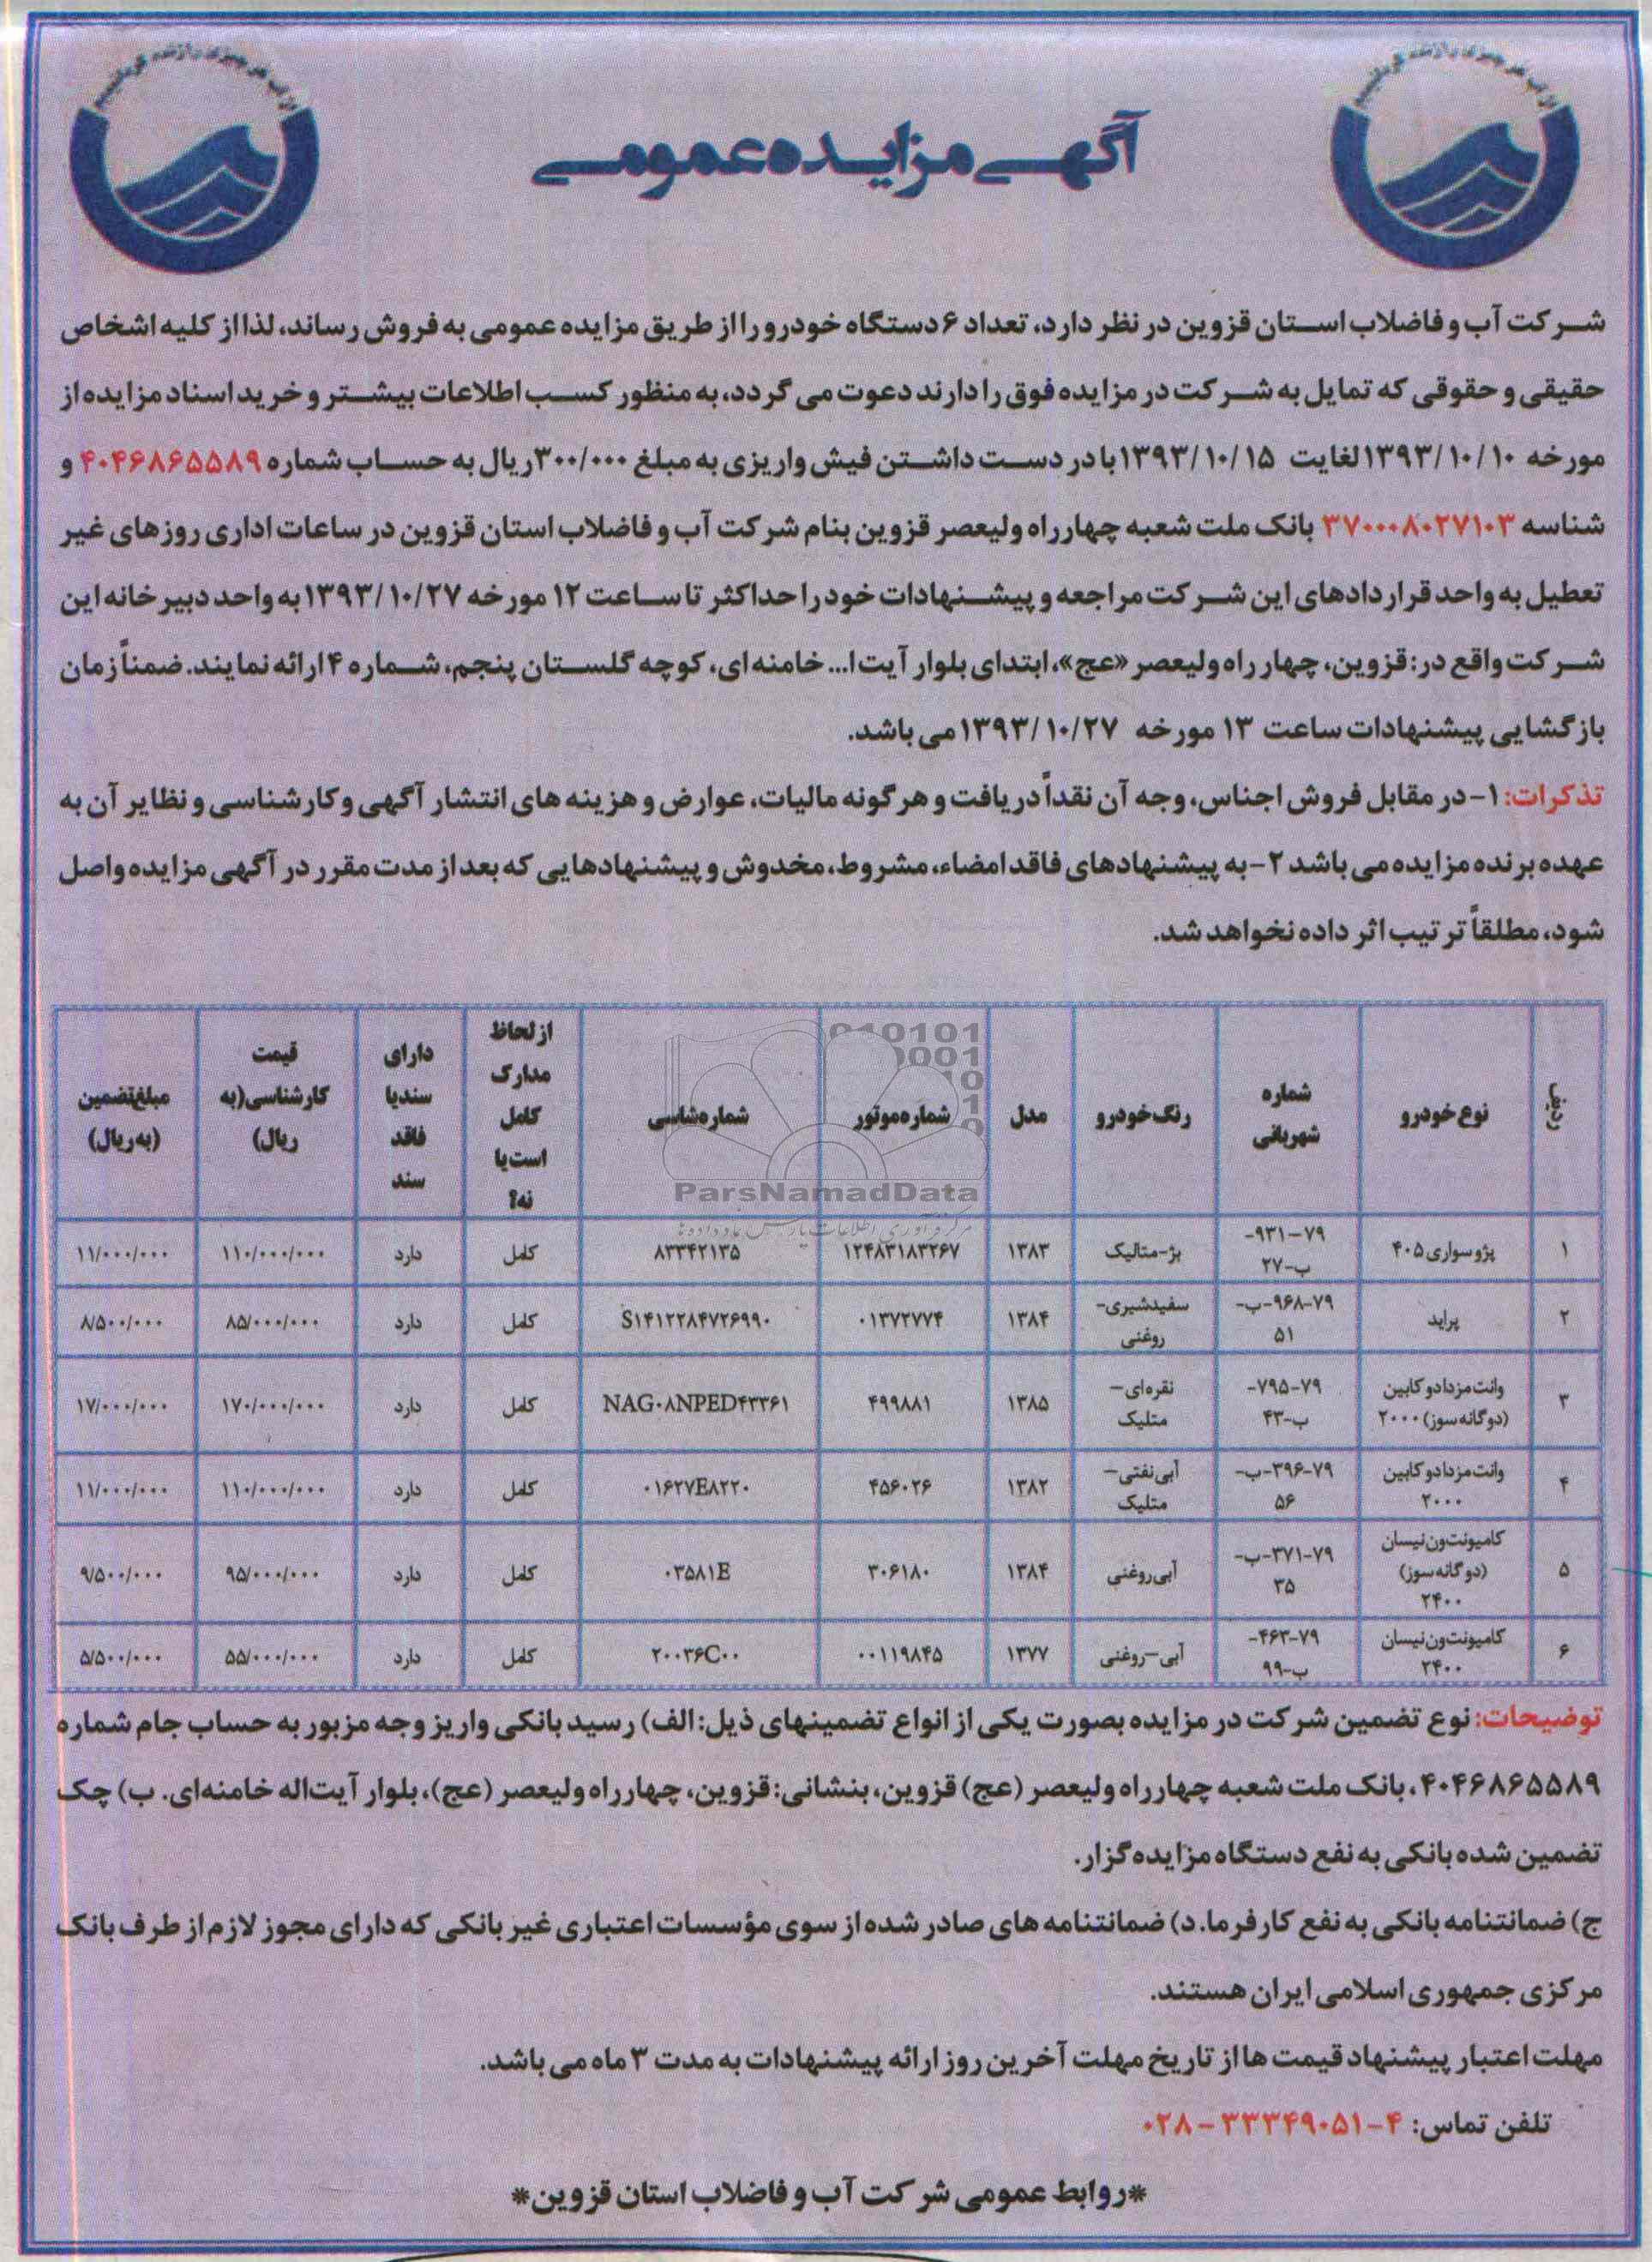 از آب هر چیزی را زنده گردانیدیم
از آب هر چیزی را زنده گردانیدیم
آگهی مزایده عمومی
شرکت آب و فاضلاب استان قزوین در نظر دارد، تعداد ۶ دستگاه خودرو را از طریق مزایده عمومی به فروش رساند، لذا از کلیه اشخاص
حقیقی و حقوقی که تمایل به شرکت در مزایده فوق را دارند دعوت می گردد، به منظور کسب اطلاعات بیشتر و خرید اسناد مزایده از
مورخه ۱۳۹۳/۱۰/۱۰ لغایت ۱۳۹۳/۱۰/۱۵ با در دست داشتن فیش واریزی به مبلغ ۳۰۰/۰۰۰ ریال به حساب شماره ۴۰۴۶۸۶۵۵۸۹ و
شناسه ۳۷۰۰۰۸۰۲۷۱۰۳ بانک ملت شعبه چهارراه ولیعصر قزوین بنام شرکت آب و فاضلاب استان قزوین در ساعات اداری روزهای غیر
تعطیل به واحد قراردادهای این شرکت مراجعه و پیشنهادات خود را حداکثر تا ساعت ۱۲ مورخه ۱۳۹۳/۱۰/۲۷ به واحد دبیرخانه این
شرکت واقع در: قزوین، چهارراه ولیعصر «عج»، ابتدای بلوار آیت ا... خامنه ای، کوچه گلستان پنجم، شماره ۴ ارائه نمایند. ضمناً زمان
بازگشایی پیشنهادات ساعت ۱۳ مورخه ۱۳۹۳/۱۰/۲۷ می باشد.
تذکرات: ۱- در مقابل فروش اجناس، وجه آن نقداً دریافت و هرگونه مالیات، عوارض و هزینه های انتشار آگهی و کارشناسی و نظایر آن به
عهده برنده مزایده می باشد ۲- به پیشنهادهای فاقد امضاء، مشروط، مخدوش و پیشنهادهایی که بعد از مدت مقرر در آگهی مزایده واصل
شود، مطلقاً ترتیب اثر داده نخواهد شد.
ردیف نوع خودرو شماره شهربانی رنگ خودرو مدل شماره موتور شماره شاسی از لحاظ مدارک کامل است یا نه؟ دارای سند یا فاقد سند قیمت کارشناسی (به ریال) مبلغ تضمین (به ریال)
۱ پژو سواری ۴۰۵ ۷۹-۹۳۱-ب-۲۷ بژ-متالیک ۱۳۸۳ ۱۲۴۸۳۱۸۳۲۶۷ ۸۳۳۴۲۱۳۵ کامل دارد ۱۱۰/۰۰۰/۰۰۰ ۱۱/۰۰۰/۰۰۰
۲ پراید ۷۹-۹۶۸-ب-۵۱ سفید شیری-روغنی ۱۳۸۴ ۰۱۳۷۲۷۷۴ S۱۴۱۲۲۸۴۷۲۶۹۹۰ کامل دارد ۸۵/۰۰۰/۰۰۰ ۸/۵۰۰/۰۰۰
۳ وانت مزدا دو کابین (دوگانه سوز) ۲۰۰۰ ۷۹-۷۹۵-ب-۴۳ نقره ای-متلیک ۱۳۸۵ ۴۹۹۸۸۱ NAG۰۸NPED۴۳۳۶۱ کامل دارد ۱۷۰/۰۰۰/۰۰۰ ۱۷/۰۰۰/۰۰۰
۴ وانت مزدا دو کابین ۲۰۰۰ ۷۹-۳۹۶-ب-۵۶ آبی نفتی-متلیک ۱۳۸۲ ۴۵۶۰۲۶ ۰۱۶۲۷E۸۲۲۰ کامل دارد ۱۱۰/۰۰۰/۰۰۰ ۱۱/۰۰۰/۰۰۰
۵ کامیونت ون نیسان (دوگانه سوز) ۲۴۰۰ ۷۹-۳۷۱-ب-۳۵ آبی روغنی ۱۳۸۴ ۳۰۶۱۸۰ ۰۳۵۸۱E کامل دارد ۹۵/۰۰۰/۰۰۰ ۹/۵۰۰/۰۰۰
۶ کامیونت ون نیسان ۲۴۰۰ ۷۹-۴۶۳-ب-۹۹ آبی-روغنی ۱۳۷۷ ۰۰۱۱۹۸۴۵ ۲۰۰۳۶C۰۰ کامل دارد ۵۵/۰۰۰/۰۰۰ ۵/۵۰۰/۰۰۰
ParsNamadData
توضیحات: نوع تضمین شرکت در مزایده بصورت یکی از انواع تضمینهای ذیل: الف) رسید بانکی واریز وجه مزبور به حساب جام شماره
۴۰۴۶۸۶۵۵۸۹، بانک ملت شعبه چهارراه ولیعصر (عج) قزوین، بنشانی: قزوین، چهارراه ولیعصر (عج)، بلوار آیت اله خامنه ای. ب) چک
تضمین شده بانکی به نفع دستگاه مزایده گزار.
ج) ضمانتنامه بانکی به نفع کارفرما. د) ضمانتنامه های صادر شده از سوی مؤسسات اعتباری غیر بانکی که دارای مجوز لازم از طرف بانک
مرکزی جمهوری اسلامی ایران هستند.
مهلت اعتبار پیشنهاد قیمت ها از تاریخ مهلت آخرین روز ارائه پیشنهادات به مدت ۳ ماه می باشد.
تلفن تماس: ۴-۳۳۳۴۹۰۵۱ - ۰۲۸
*روابط عمومی شرکت آب و فاضلاب استان قزوین*